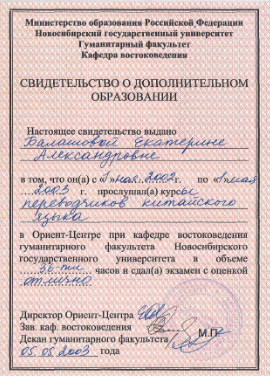 Министерство образования Российской Федерации
Новосибирский государственный университет
Гуманитарный факультет
Кафедра востоковедения
СВИДЕТЕЛЬСТВО О ДОПОЛНИТЕЛЬНОМ
ОБРАЗОВАНИИ
Настоящее свидетельство выдано
Балашовой Екатерине
Александровне
в том, что он(а) с «1» мая 2002 г. по «1» мая
2003 г. прослушал(а) курсы
переводчиков китайского
языка
в Ориент-Центре при кафедре востоковедения
гуманитарного факультета Новосибирского
государственного университета в объеме
36-ти часов и сдал(а) экзамен с оценкой
отлично
Директор Ориент-Центра
Зав. каф. востоковедения
М.П.
Декан гуманитарного факультета
05.05.2003 года